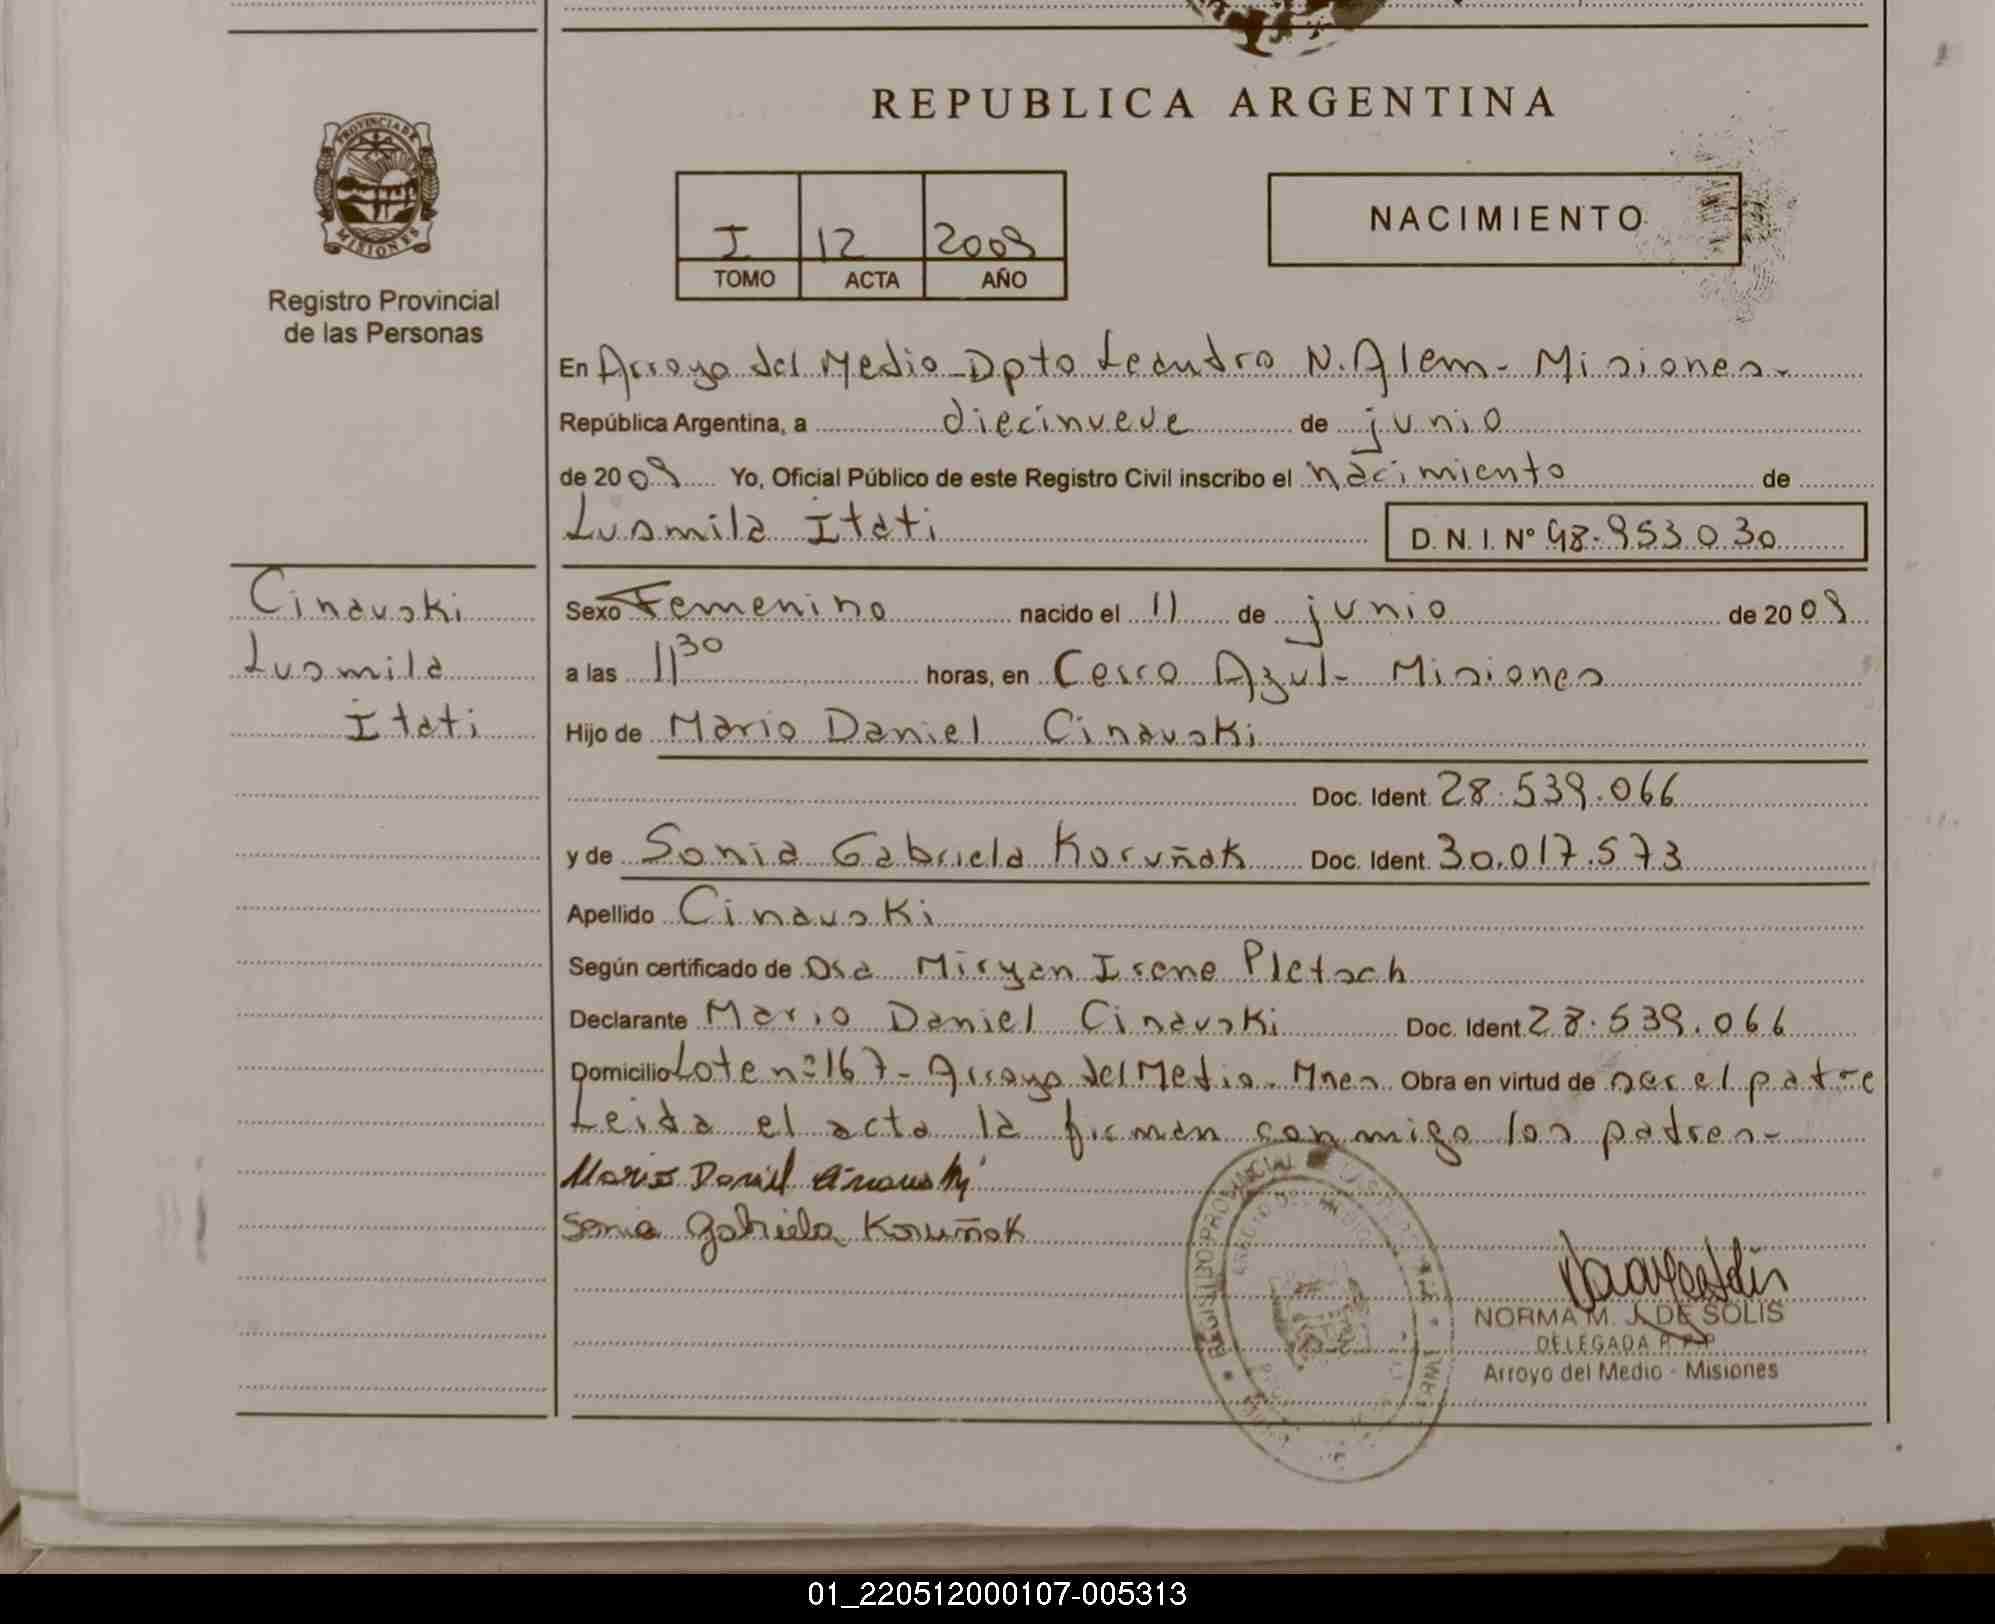 REPUBLICA ARGENTINA
PROVINCIA DE
MISIONES
Registro Provincial
de las Personas
I 12 2009
TOMO ACTA AÑO
NACIMIENTO
En Arroyo del Medio - Dpto Leandro N. Alem - Misiones -
República Argentina, a diecinueve de junio
de 2009 Yo, Oficial Público de este Registro Civil inscribo el nacimiento de
Lusmila Itati D. N. I. Nº 48.953.030
Cinauski
Lusmila
Itati
Sexo Femenino nacido el 11 de junio de 2009
a las 11 30 horas, en Cerro Azul - Misiones
Hijo de Mario Daniel Cinauski
Doc. Ident. 28.539.066
y de Sonia Gabriela Koruñak Doc. Ident. 30.017.573
Apellido Cinauski
Según certificado de Dra Miryan Irene Pletsch
Declarante Mario Daniel Cinauski Doc. Ident. 28.539.066
Domicilio Lote nº 167 - Arroyo del Medio - Mnes Obra en virtud de ser el padre
Leida el acta la firman conmigo los padres -
Mario Daniel Cinauski
Sonia Gabriela Koruñak
REGISTRO PROVINCIAL
ARROYO DEL MEDIO
NORMA M. J. DE SOLIS
DELEGADA R.P.P.
Arroyo del Medio - Misiones
01_220512000107-005313